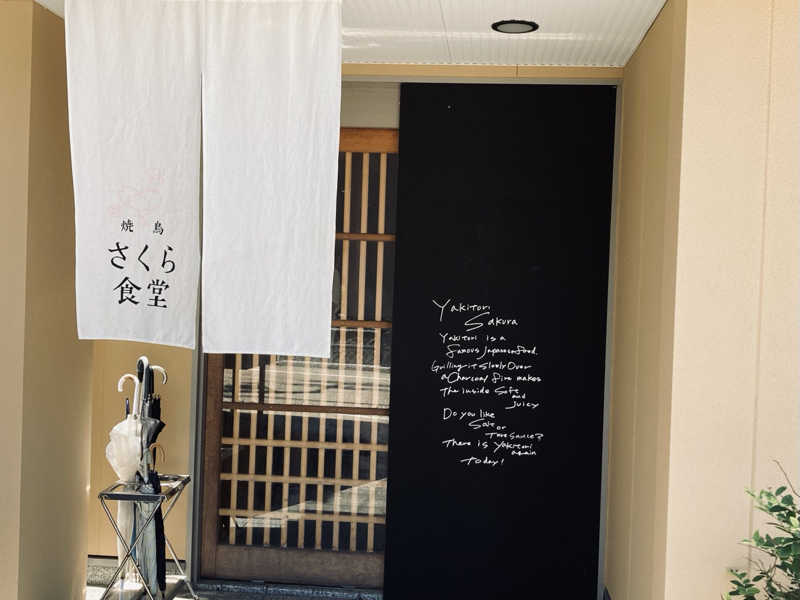 焼鳥
さくら
食堂
Yakitori
Sakura
Yakitori is a
famous Japanese food.
Grilling it slowly over
a charcoal fire makes
the inside soft
and
juicy
Do you like
Salt or
Tare sauce?
There is yakitori
again
today!